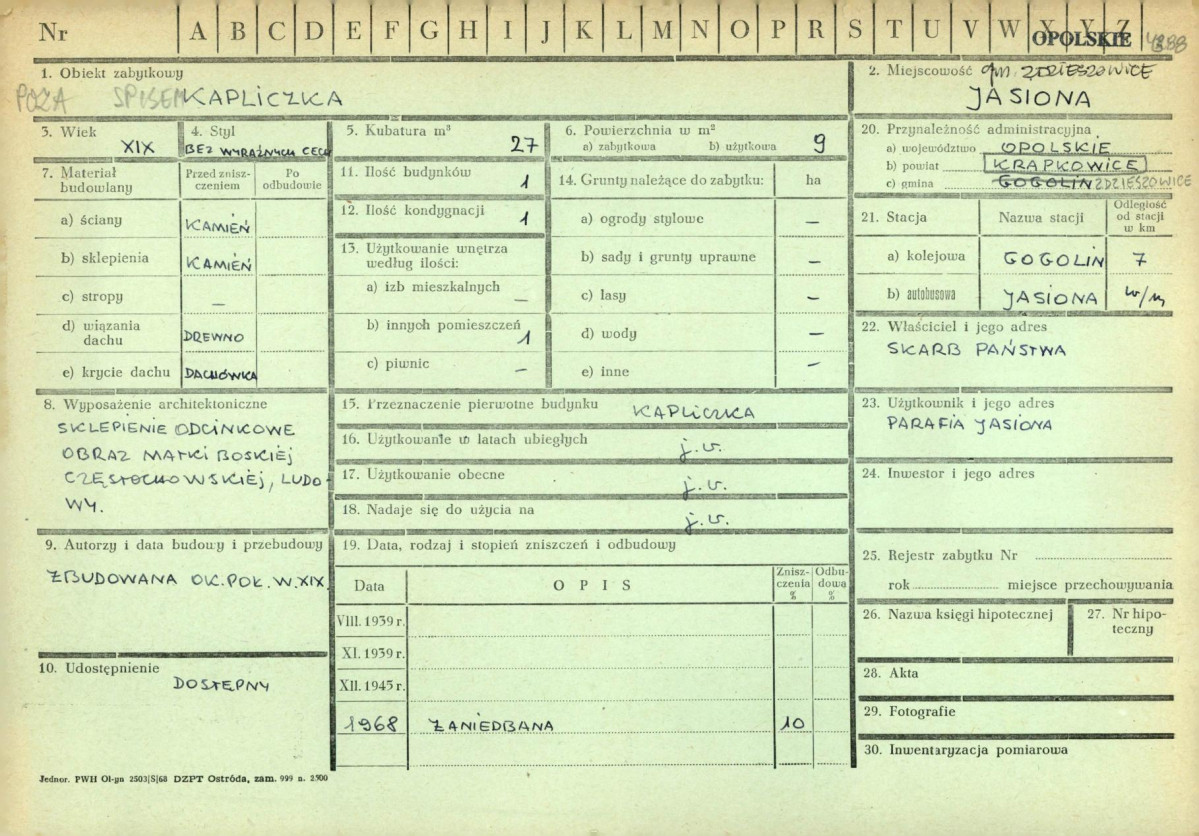 Nr A B C D E F G H I J K L M N O P R S T U V W X Y Z
OPOLSKIE
1. Obiekt zabytkowy
POZA SPISEM KAPLICZKA
2. Miejscowość gm. ZDZIESZOWICE
JASIONA
3. Wiek
XIX
4. Styl
BEZ WYRAŹNYCH CECH
5. Kubatura m³
27
6. Powierzchnia w m²
a) zabytkowa b) użytkowa 9
7. Materiał budowlany
Przed znisz-
czeniem
Po
odbudowie
a) ściany KAMIEŃ
b) sklepienia KAMIEŃ
c) stropy –
d) wiązania
dachu DREWNO
e) krycie dachu DACHÓWKA
11. Ilość budynków 1
12. Ilość kondygnacji 1
13. Użytkowanie wnętrza
według ilości:
a) izb mieszkalnych –
b) innych pomieszczeń 1
c) piwnic –
14. Grunty należące do zabytku: ha
a) ogrody stylowe –
b) sady i grunty uprawne –
c) lasy –
d) wody –
e) inne –
20. Przynależność administracyjna
a) województwo OPOLSKIE
b) powiat KRAPKOWICE
c) gmina GOGOLIN ZDZIESZOWICE
21. Stacja Nazwa stacji Odległość
od stacji
w km
a) kolejowa GOGOLIN 7
b) autobusowa JASIONA w/m
22. Właściciel i jego adres
SKARB PAŃSTWA
23. Użytkownik i jego adres
PARAFIA JASIONA
24. Inwestor i jego adres
8. Wyposażenie architektoniczne
SKLEPIENIE ODCINKOWE
OBRAZ MATKI BOSKIEJ
CZĘSTOCHOWSKIEJ, LUDO-
WY.
15. Przeznaczenie pierwotne budynku KAPLICZKA
16. Użytkowanie w latach ubiegłych j.w.
17. Użytkowanie obecne j.w.
18. Nadaje się do użycia na j.w.
9. Autorzy i data budowy i przebudowy
ZBUDOWANA OK. POŁ. W. XIX.
10. Udostępnienie
DOSTĘPNY
19. Data, rodzaj i stopień zniszczeń i odbudowy
Data OPIS Znisz-
czenia
%
Odbu-
dowa
%
VIII. 1939 r.
XI. 1939 r.
XII. 1945 r.
1968 ZANIEDBANA 10
25. Rejestr zabytku Nr
rok miejsce przechowywania
26. Nazwa księgi hipotecznej
27. Nr hipo-
teczny
28. Akta
29. Fotografie
30. Inwentaryzacja pomiarowa
Jednor. PWH Ol-yn 2503/S/68 DZPT Ostróda, zam. 999 n. 2.500